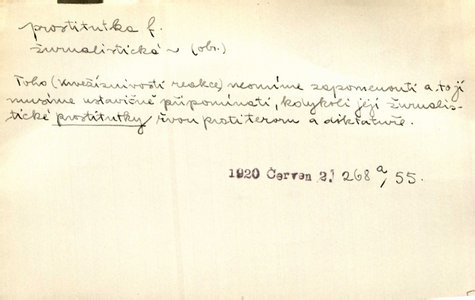 prostitutka f.
žurnalistická ~ (obr.)
Toho (krvežíznivosti reakce) nesmíme zapomenouti a to jí
musíme ustavičně připomínati, kdykoli její žurnalis-
tické prostitutky řvou proti teroru a diktatuře.
1920 Červen 2! 268 a/55.